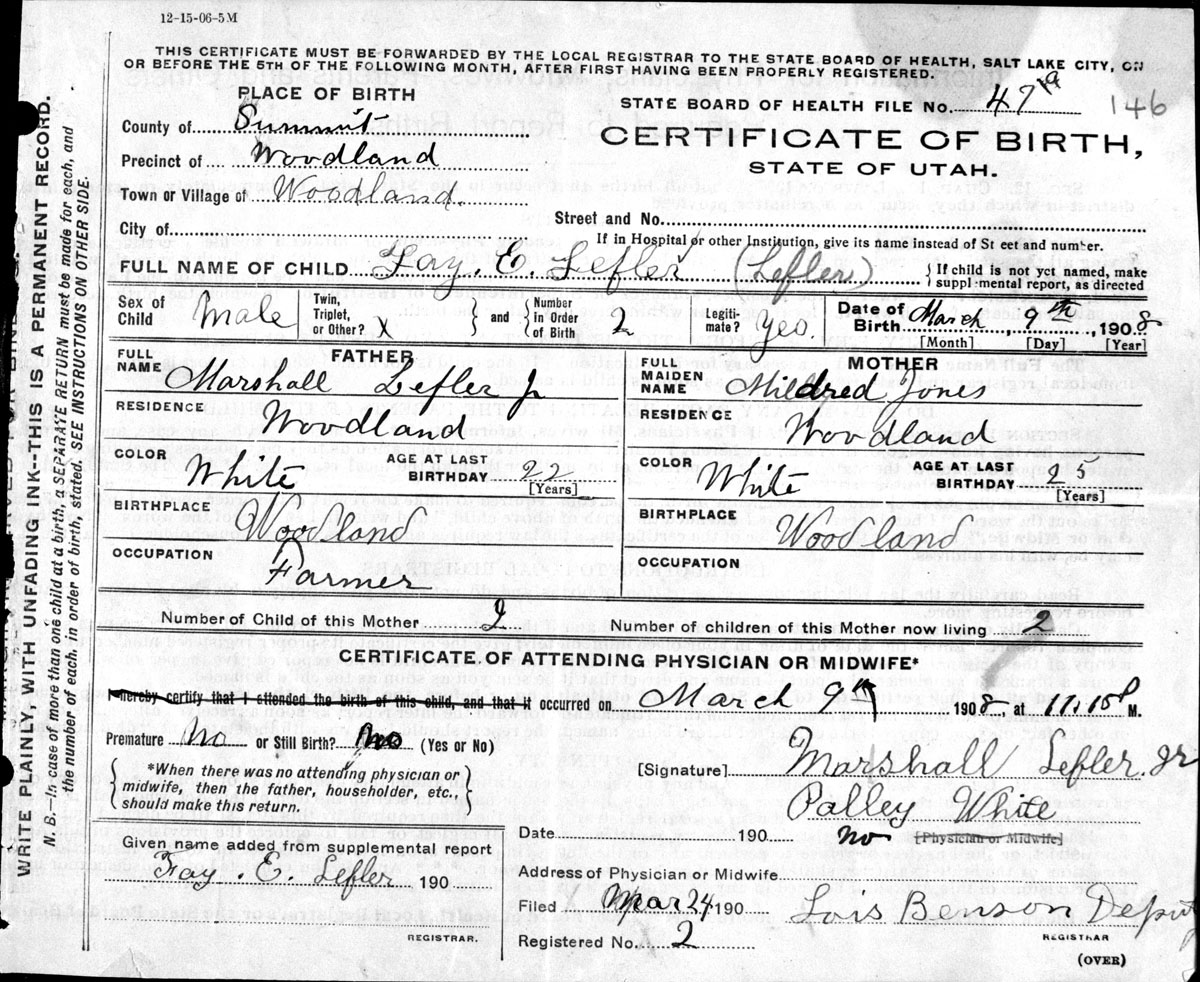 12-15-06-5M
THIS CERTIFICATE MUST BE FORWARDED BY THE LOCAL REGISTRAR TO THE STATE BOARD OF HEALTH, SALT LAKE CITY, ON
OR BEFORE THE 5TH OF THE FOLLOWING MONTH, AFTER FIRST HAVING BEEN PROPERLY REGISTERED.
PLACE OF BIRTH
STATE BOARD OF HEALTH FILE No. 47 a 146
County of Summit
CERTIFICATE OF BIRTH,
Precinct of Woodland
STATE OF UTAH.
Town or Village of Woodland.
Street and No.
City of
If in Hospital or other Institution, give its name instead of St eet and number.
FULL NAME OF CHILD Fay. E. Lefler (Lefler) } If child is not yet named, make
suppl-mental report, as directed
Sex of Child Male
Twin, Triplet, or Other? X
and
Number in Order of Birth 2
Legiti-mate? Yes
Date of Birth March 9th, 1908
[Month] [Day] [Year]
FATHER
FULL NAME Marshall Lefler Jr
RESIDENCE Woodland
COLOR White
AGE AT LAST BIRTHDAY 22
[Years]
BIRTHPLACE Woodland
OCCUPATION Farmer
MOTHER
FULL MAIDEN NAME Mildred Jones
RESIDENCE Woodland
COLOR White
AGE AT LAST BIRTHDAY 25
[Years]
BIRTHPLACE Woodland
OCCUPATION
Number of Child of this Mother 2
Number of children of this Mother now living 2
CERTIFICATE OF ATTENDING PHYSICIAN OR MIDWIFE*
I hereby certify that I attended the birth of this child, and that it occurred on March 9th 1908, at 11.10 P M.
Premature No or Still Birth? No (Yes or No)
*When there was no attending physician or
midwife, then the father, householder, etc.,
should make this return.
[Signature] Marshall Lefler. Jr
Palley White
Date 190 no [Physician or Midwife]
Given name added from supplemental report
Fay. E. Lefler 190
REGISTRAR.
Address of Physician or Midwife
Filed Mar 24 190 Lois Benson Deputy
REGISTRAR
Registered No. 2
(OVER)
WRITE PLAINLY, WITH UNFADING INK--THIS IS A PERMANENT RECORD.
N. B.--In case of more than one child at a birth, a SEPARATE RETURN must be made for each, and
the number of each, in order of birth, stated. SEE INSTRUCTIONS ON OTHER SIDE